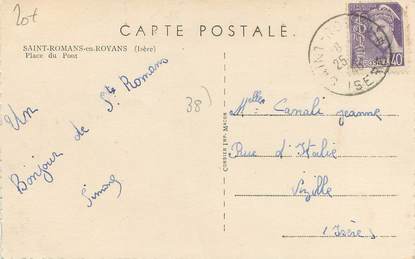 20f
CARTE POSTALE
SAINT-ROMANS-en-ROYANS (Isère)
Place du Pont
Un
Bonjour de St Romans
Simone
38)
Melles Canali Jeanne
Rue d'Italie
Vizille
(Isère)
COMBIER IMP. MACON
25
ISERE
40